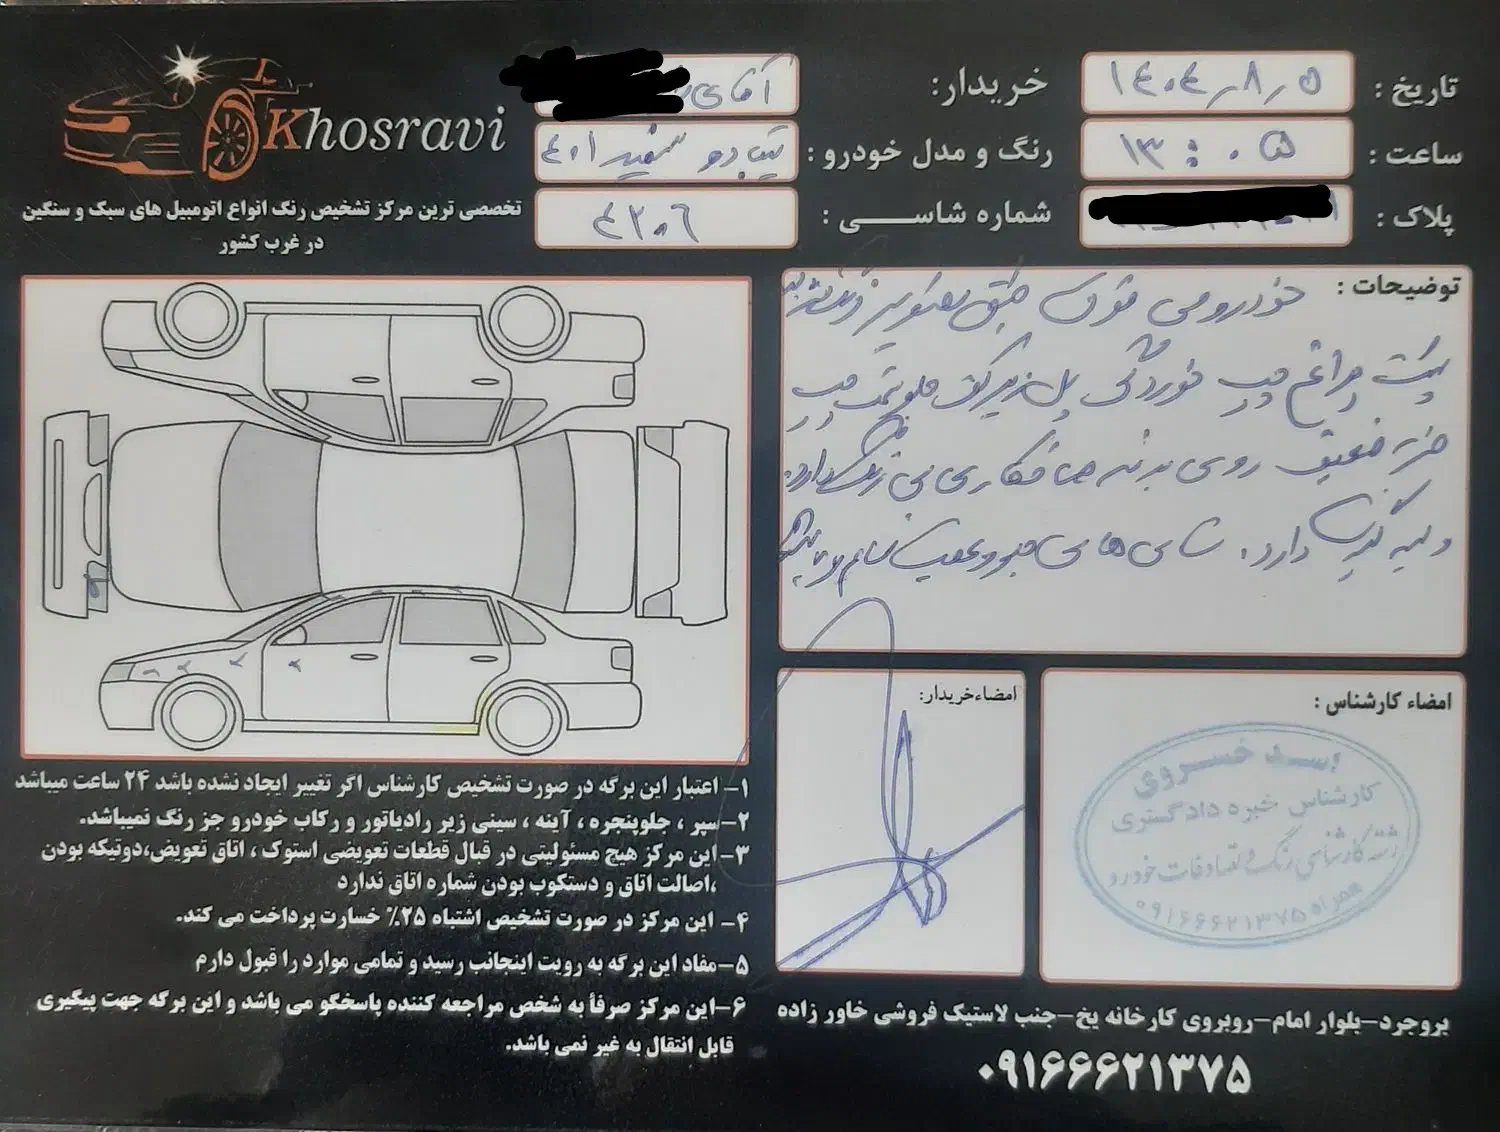 Khosravi
تخصصی ترین مرکز تشخیص رنگ انواع اتومبیل های سبک و سنگین
در غرب کشور
تاریخ : ۱۴۰۴٫۸٫۵
خریدار: آقای
ساعت : ۱۳:۰۵
رنگ و مدل خودرو : تیبا دو سفید ۴۰۱
پلاک :
شماره شاسی : ۴۲۰۶
توضیحات : خودروی فوق طبق تصویر
پشت چراغ چپ خوردگی پل زیر کف جلو سمت چپ
ضربه ضعیف روی بدنه صافکاری بی رنگ دارد.
دارد. شاسی های جلو و عقب سالم
امضاء کارشناس :
امضاء خریدار:
خسروی
کارشناس خبره دادگستری
رشته کارشناسی رنگ و تصادفات خودرو
همراه ۰۹۱۶۶۶۲۱۳۷۵
۱– اعتبار این برگه در صورت تشخیص کارشناس اگر تغییر ایجاد نشده باشد ۲۴ ساعت میباشد
۲–سپر ، جلوپنجره ، آینه ، سینی زیر رادیاتور و رکاب خودرو جز رنگ نمیباشد.
۳– این مرکز هیچ مسئولیتی در قبال قطعات تعویضی استوک ، اتاق تعویض،دوتیکه بودن
،اصالت اتاق و دستکوب بودن شماره اتاق ندارد
۴– این مرکز در صورت تشخیص اشتباه ۲۵٪ خسارت پرداخت می کند.
۵–مفاد این برگه به رویت اینجانب رسید و تمامی موارد را قبول دارم
۶–این مرکز صرفاً به شخص مراجعه کننده پاسخگو می باشد و این برگه جهت پیگیری
قابل انتقال به غیر نمی باشد.
بروجرد–بلوار امام–روبروی کارخانه یخ–جنب لاستیک فروشی خاور زاده
۰۹۱۶۶۶۲۱۳۷۵